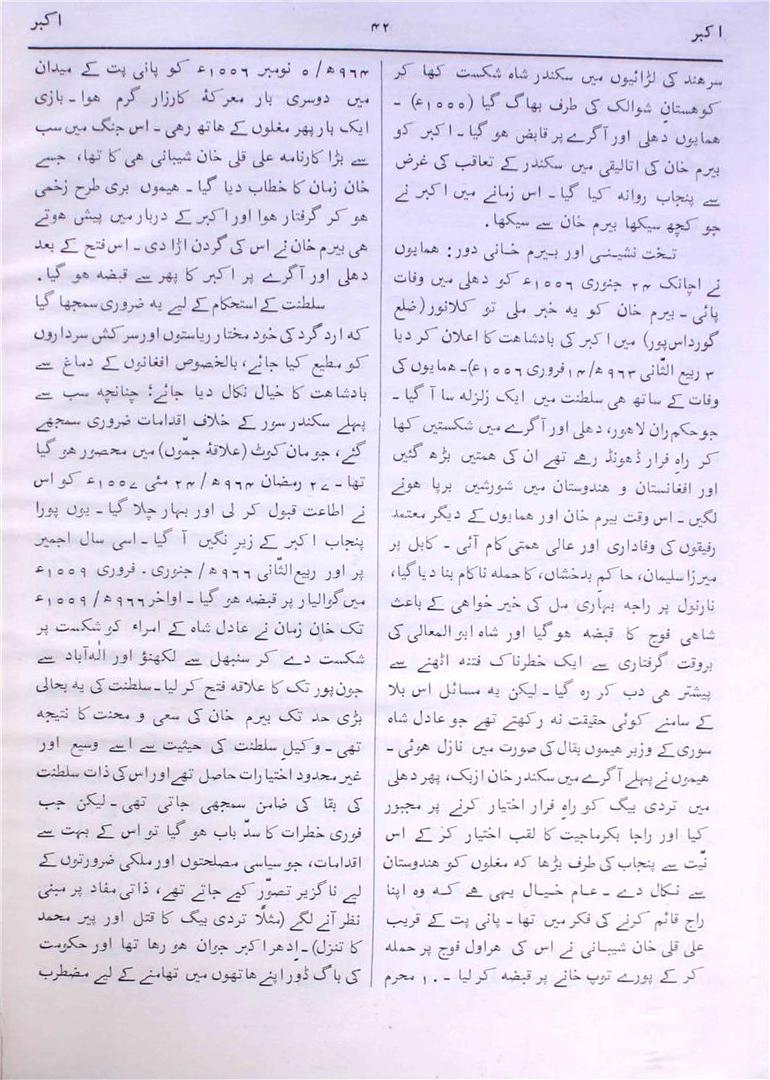 اکبر
۴۲
اکبر
سرهند کی لڑائیوں میں سکندر شاہ شکست کھا کر
کوهستانِ شوالک کی طرف بھاگ گیا (۱۵۵۵ء) ۔
همایوں دهلی اور آگرے پر قابض هو گیا ۔ اکبر کو
بیرم خان کی اتالیقی میں سکندر کے تعاقب کی غرض
سے پنجاب روانه کیا گیا ۔ اس زمانے میں اکبر نے
جو کچھ سیکھا بیرم خان سے سیکھا.
تخت نشینی اور بیرم خانی دور: همایوں
نے اچانک ۲۴ جنوری ۱۵۵۶ء کو دهلی میں وفات
پائی ۔ بیرم خان کو یه خبر ملی تو کلانور (ضلع
گورداس پور) میں اکبر کی بادشاهت کا اعلان کر دیا
۳ ربیع الثانی ۹۶۳ھ/۱۴ فروری ۱۵۵۶ء)۔ همایوں کی
وفات کے ساتھ هی سلطنت میں ایک زلزله سا آ گیا ۔
جو حکم ران لاهور، دهلی اور آگرے میں شکستیں کھا
کر راہِ فرار ڈھونڈ رهے تھے ان کی همتیں بڑھ گئیں
اور افغانستان و هندوستان میں شورشیں برپا هونے
لگیں ۔ اس وقت بیرم خان اور همایوں کے دیگر معتمد
رفیقوں کی وفاداری اور عالی همتی کام آئی ۔ کابل پر
میرزا سلیمان، حاکمِ بدخشاں، کا حمله ناکام بنا دیا گیا،
نارنول پر راجه بہاری مل کی خیر خواهی کے باعث
شاهی فوج کا قبضه هو گیا اور شاہ ابو المعالی کی
بروقت گرفتاری سے ایک خطرناک فتنه اٹھنے سے
پیشتر هی دب کر رہ گیا ۔ لیکن یه مسائل اس بلا
کے سامنے کوئی حقیقت نه رکھتے تھے جو عادل شاہ
سوری کے وزیر هیموں بقال کی صورت میں نازل هوئی ۔
هیموں نے پہلے آگرے میں سکندر خان ازبک، پھر دهلی
میں تردی بیگ کو راہِ فرار اختیار کرنے پر مجبور
کیا اور راجا بکرماجیت کا لقب اختیار کر کے اس
نیّت سے پنجاب کی طرف بڑھا که مغلوں کو هندوستان
سے نکال دے ۔ عام خیال یہی هے که وہ اپنا
راج قائم کرنے کی فکر میں تھا ۔ پانی پت کے قریب
علی قلی خان شیبانی نے اس کی هراول فوج پر حمله
کر کے پورے توپ خانے پر قبضه کر لیا ۔ ۱۰ محرم
۹۶۴ھ/ ۵ نومبر ۱۵۵۶ء کو پانی پت کے میدان
میں دوسری بار معرکۂ کارزار گرم هوا ۔ بازی
ایک بار پھر مغلوں کے هاتھ رهی ۔ اس جنگ میں سب
سے بڑا کارنامه علی قلی خان شیبانی هی کا تھا، جسے
خان زمان کا خطاب دیا گیا ۔ هیموں بری طرح زخمی
هو کر گرفتار هوا اور اکبر کے دربار میں پیش هوتے
هی بیرم خان نے اس کی گردن اڑا دی ۔ اس فتح کے بعد
دهلی اور آگرے پر اکبر کا پھر سے قبضه هو گیا.
سلطنت کے استحکام کے لیے یه ضروری سمجھا گیا
که ارد گرد کی خود مختار ریاستوں اور سرکش سرداروں
کو مطیع کیا جائے، بالخصوص افغانوں کے دماغ سے
بادشاهت کا خیال نکال دیا جائے؛ چنانچه سب سے
پہلے سکندر سور کے خلاف اقدامات ضروری سمجھے
گئے، جو مان کوٹ (علاقۂ جمّوں) میں محصور هو گیا
تھا ۔ ۲۷ رمضان ۹۶۴ھ/ ۲۴ مئی ۱۵۵۷ء کو اس
نے اطاعت قبول کر لی اور بہار چلا گیا ۔ یوں پورا
پنجاب اکبر کے زیرِ نگیں آ گیا ۔ اسی سال اجمیر
پر اور ربیع الثّانی ۹۶۶ھ/ جنوری ۔ فروری ۱۵۵۹ء
میں گوالیار پر قبضه هو گیا ۔ اواخر ۹۶۶ھ/ ۱۵۵۹ء
تک خان زمان نے عادل شاہ کے امراء کو شکست پر
شکست دے کر سنبھل سے لکھنؤ اور اله‌آباد سے
جون پور تک کا علاقه فتح کر لیا ۔ سلطنت کی یه بحالی
بڑی حد تک بیرم خان کی سعی و محنت کا نتیجه
تھی ۔ وکیلِ سلطنت کی حیثیت سے اسے وسیع اور
غیر محدود اختیارات حاصل تھے اور اس کی ذات سلطنت
کی بقا کی ضامن سمجھی جاتی تھی ۔ لیکن جب
فوری خطرات کا سدّ باب هو گیا تو اس کے بہت سے
اقدامات، جو سیاسی مصلحتوں اور ملکی ضرورتوں کے
لیے ناگزیر تصوّر کیے جاتے تھے، ذاتی مفاد پر مبنی
نظر آنے لگے (مثلًا تردی بیگ کا قتل اور پیر محمد
کا تنزل) ۔ اِدھر اکبر جوان هو رها تھا اور حکومت
کی باگ ڈور اپنے هاتھوں میں تھامنے کے لیے مضطرب